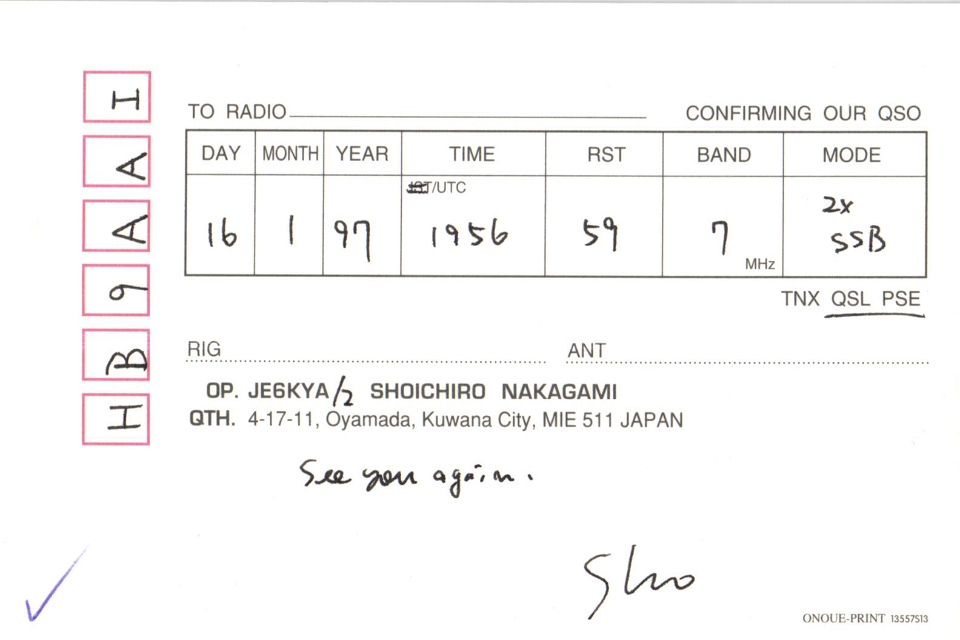 HB9AAI
TO RADIO CONFIRMING OUR QSO
DAY MONTH YEAR TIME RST BAND MODE
JST/UTC
16 1 97 1956 59 7 MHz 2x SSB
TNX QSL PSE
RIG ANT
OP. JE6KYA/2 SHOICHIRO NAKAGAMI
QTH. 4-17-11, Oyamada, Kuwana City, MIE 511 JAPAN
See you again.
Sho
ONOUE-PRINT 13557S13